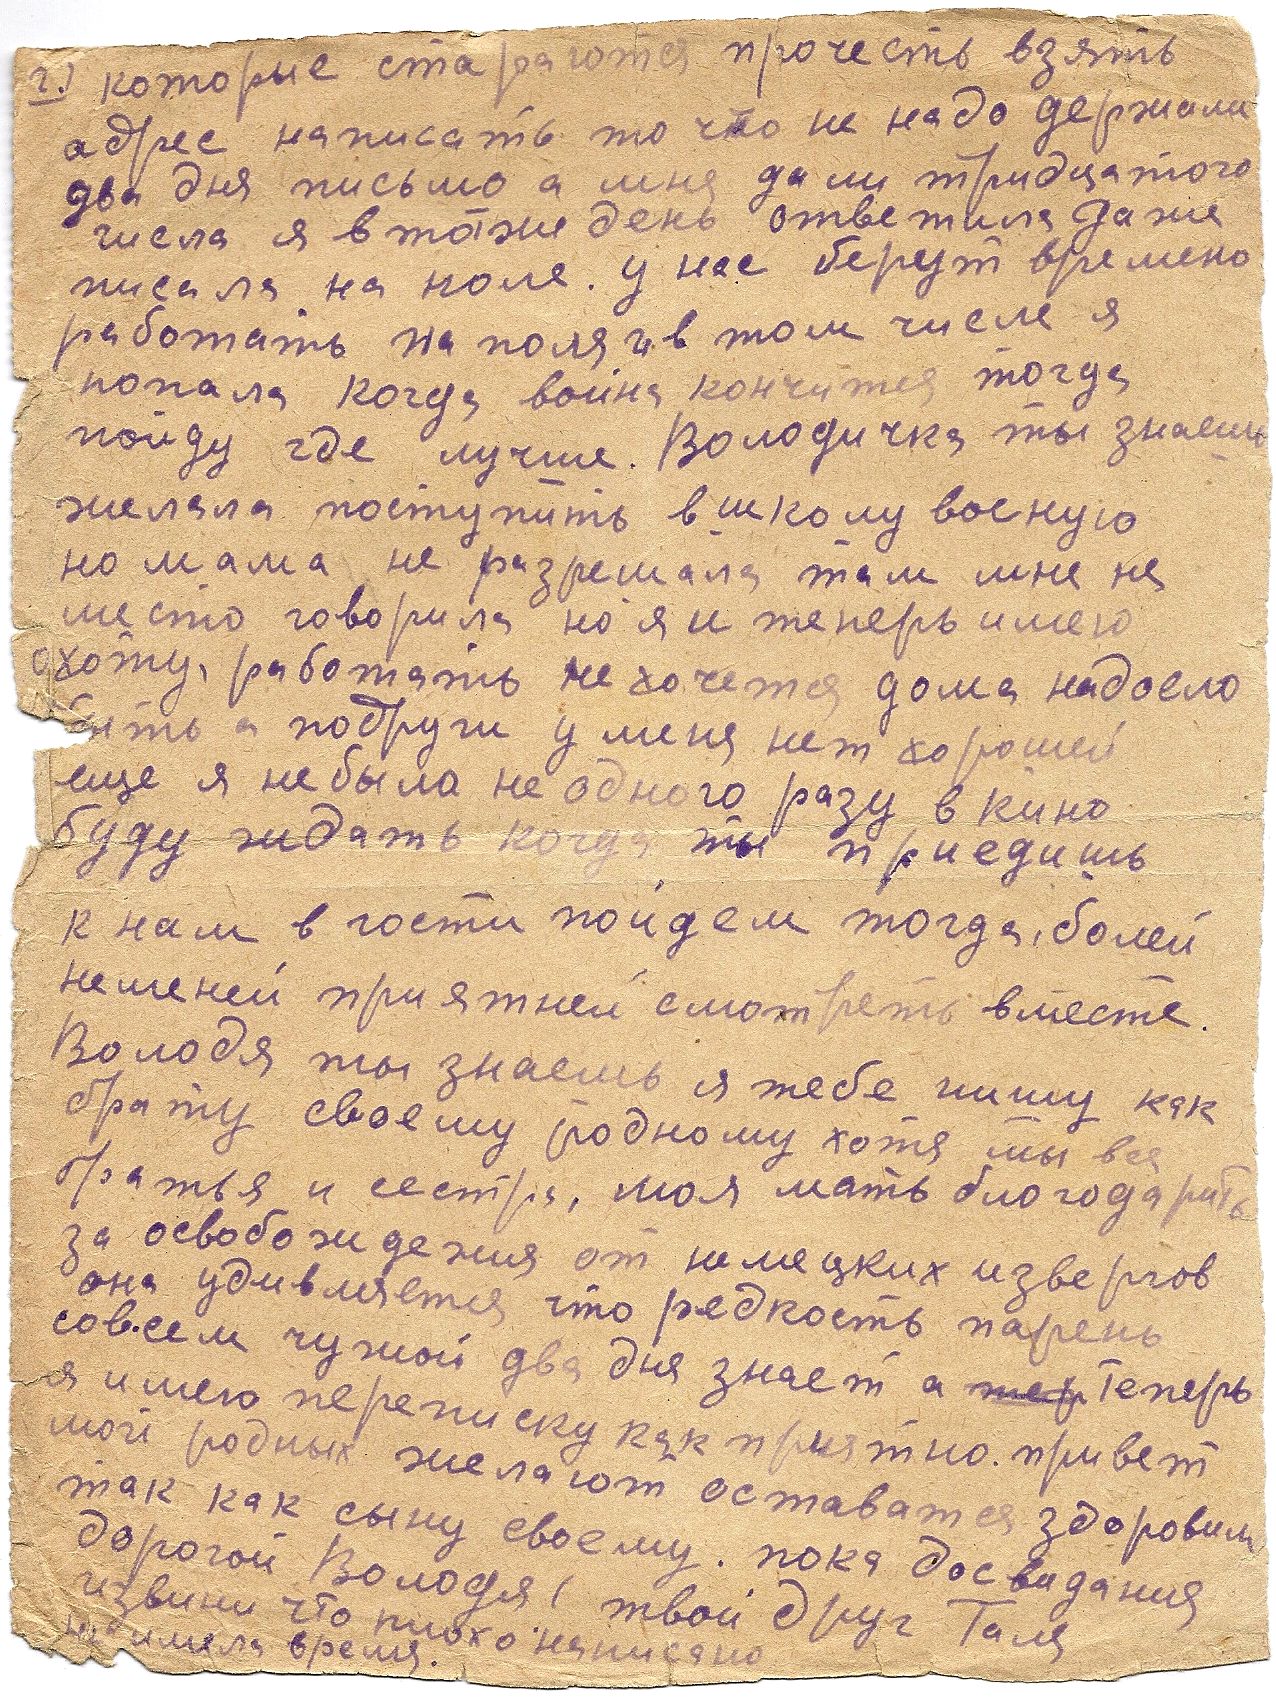 2.) которые стараются прочесть взять
адрес написать то что не надо держали
два дня письмо а мня дали тридцатого
числа я в тотже день ответила даже
писала на коле. у нас берут времено
работать на поля и в том числе я
попала когда война кончится тогда
пойду где лучше. Володичка ты знаешь
желала поступить в школу военую
но мама не разрешала там мне не
место говорила но я и теперь имею
охоту, работать не хочется дома надоело
быть а подруги у меня нет хорошей
еще я небыла не одного разу в кино
буду ждать когда ты приедишь
к нам в гости пойдем тогда, болей
неменей приятней смотреть вместе.
Володя ты знаешь я тебе пишу как
брату своему родному хотя мы вся
братья и сестра, моя мать благодарить
за освобождения от немецких извергов
она удивляется что редкость парень
совсем чужой два дня знает а тер теперь
я имею переписку как приятно. привет
мой родных желают оставатся здоровым
так как сыну своему. пока досвидания
дорогой Володя! твой друг Галя
извини что плохо написано
не имела время.